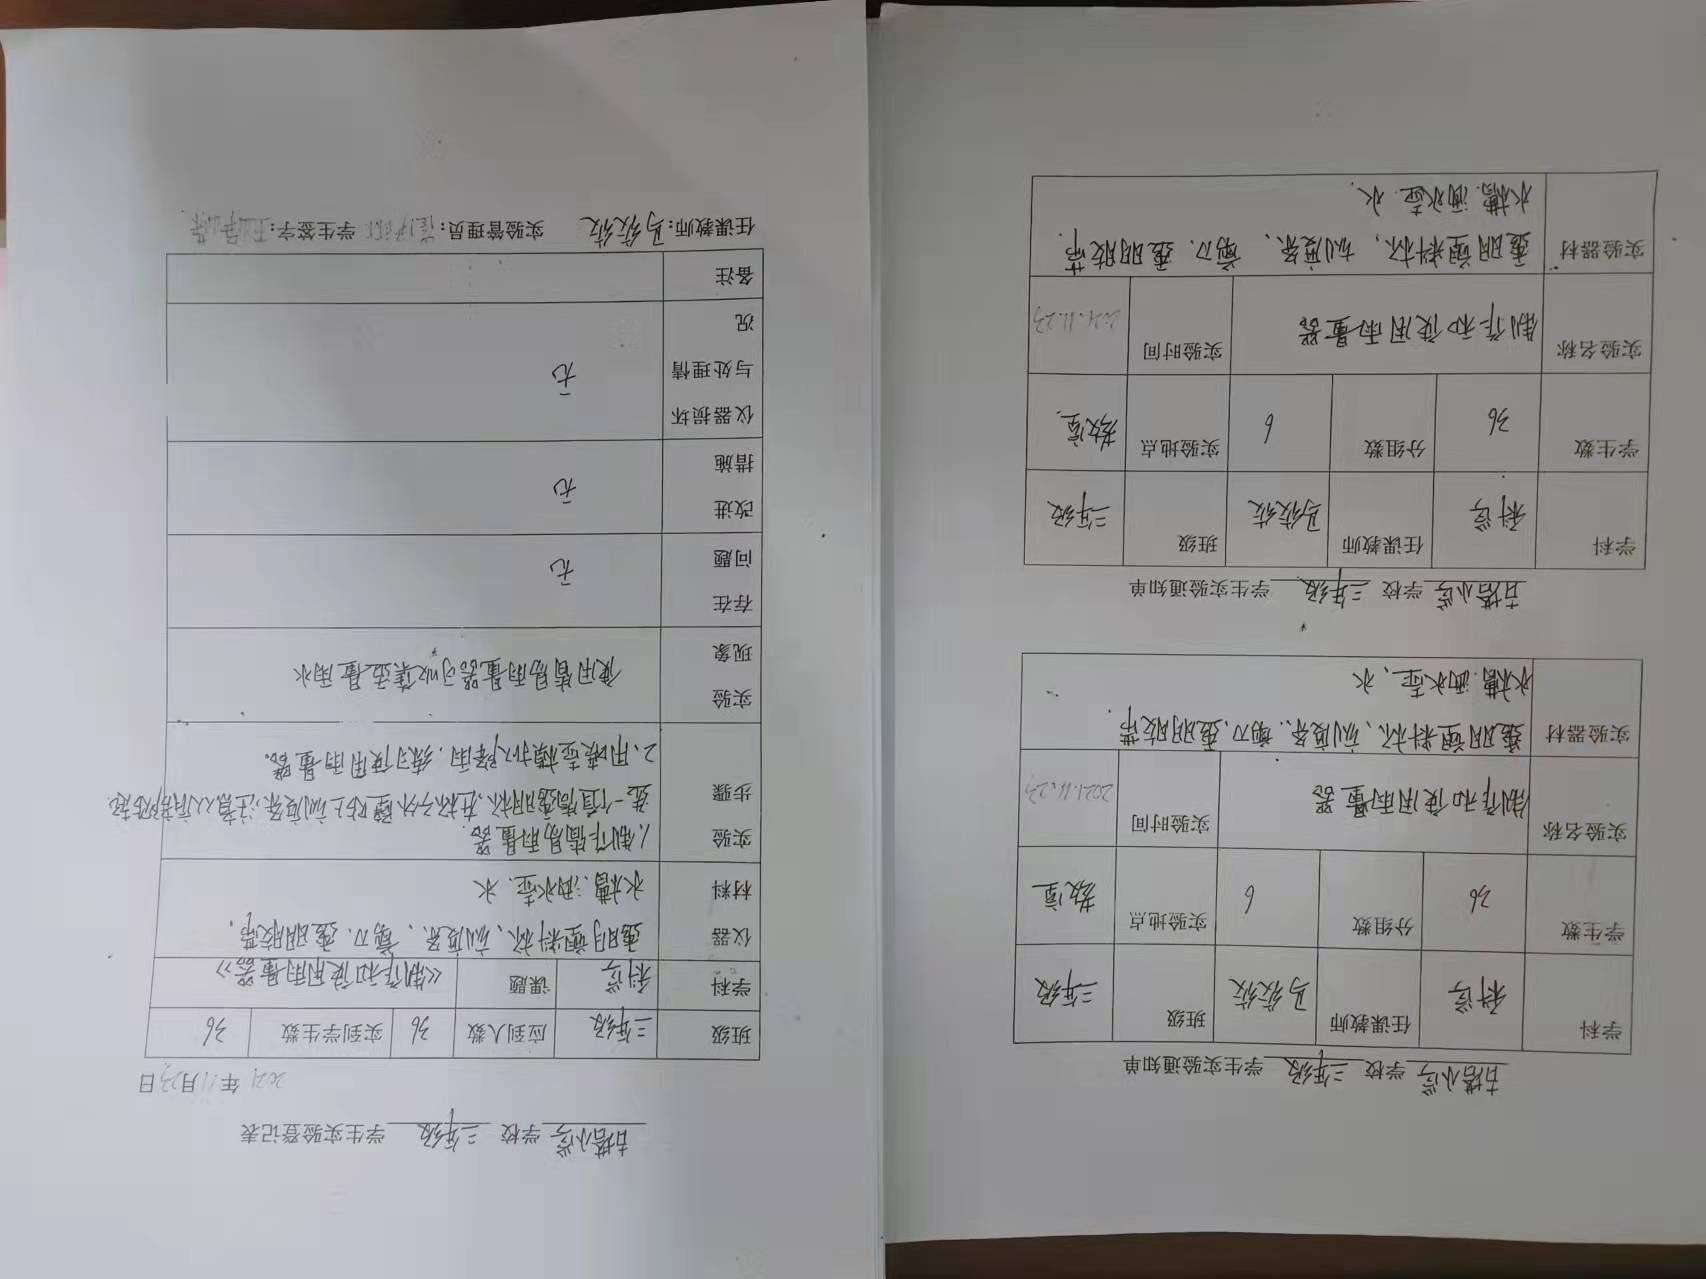 古塔小学 学校 三年级 学生实验通知单
学科 科学 任课教师 马姣姣 班级 三年级
学生数 36 分组数 6 实验地点 教室
实验名称 制作和使用雨量器 实验时间 2021.11.23
实验器材 透明塑料杯、刻度条、剪刀、透明胶带、
水槽、洒水壶、水
古塔小学 学校 三年级 学生实验通知单
学科 科学 任课教师 马姣姣 班级 三年级
学生数 36 分组数 6 实验地点 教室
实验名称 制作和使用雨量器 实验时间 2021.11.23
实验器材 透明塑料杯、刻度条、剪刀、透明胶带、
水槽、洒水壶、水
古塔小学 学校 三年级 学生实验登记表
2021年11月23日
班级 三年级 应到人数 36 实到学生数 36
学科 科学 课题 《制作和使用雨量器》
仪器 透明塑料杯、刻度条、剪刀、透明胶带、
材料 水槽、洒水壶、水
实验 1、制作简易雨量器.
步骤 选一个直筒透明杯,在杯子外壁贴上刻度条,注意
2、用喷壶模拟降雨,练习使用雨量器。
实验
现象 使用简易雨量器可收集并量雨水
存在
问题 无
改进
措施 无
仪器损坏
与处理情 无
况
备注
任课教师:马姣姣 实验管理员: 学生签字: